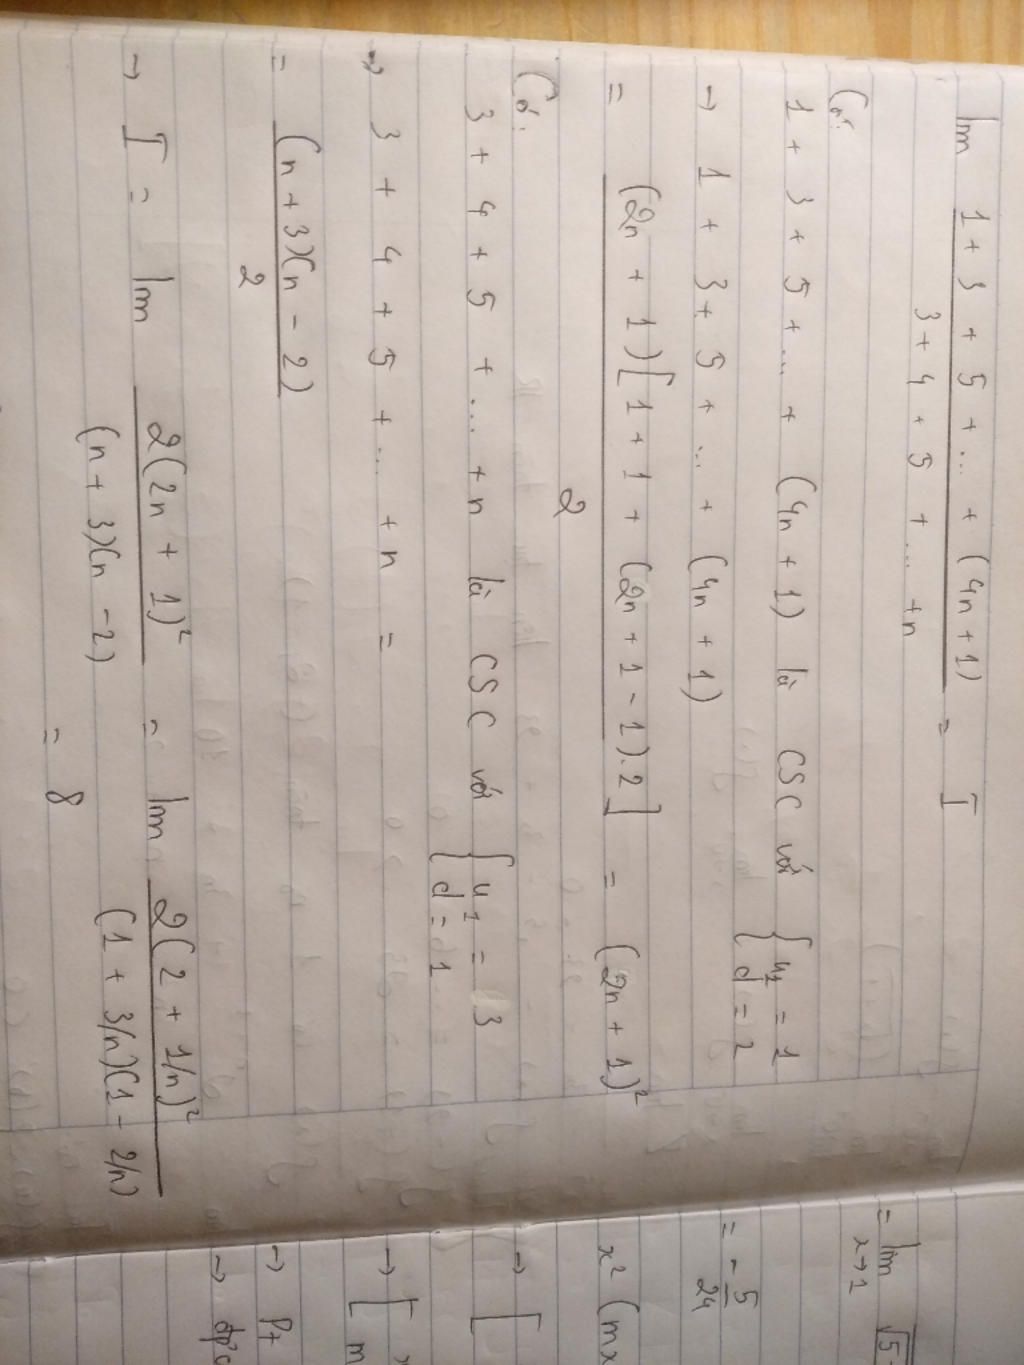 lim (1 + 3 + 5 + ... + (4n + 1))/(3 + 4 + 5 + ... + n) = I
Có:
1 + 3 + 5 + ... + (4n + 1) là CSC với { u₁ = 1
d = 2
→ 1 + 3 + 5 + ... + (4n + 1)
= (2n + 1)[1 + 1 + (2n + 1 - 1).2]/2 = (2n + 1)²
Có:
3 + 4 + 5 + ... + n là CSC với { u₁ = 3
d = 1
→ 3 + 4 + 5 + ... + n =
= (n + 3)(n - 2)/2
→ I = lim 2(2n + 1)²/(n + 3)(n - 2) = lim 2(2 + 1/n)²/(1 + 3/n)(1 - 2/n)
= 8
= lim x→1 √5
= - 5/24
x² (mx
→ [
→ [
m
→ Pt
→